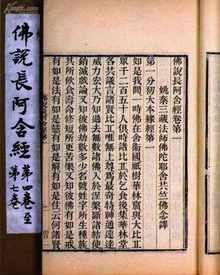 佛說長阿含經卷第一
姚秦三藏法師佛陀耶舍共竺佛念譯
第一分初大本緣經第一
如是我聞一時佛在舍衛國祇樹華林窟與大比丘
眾千二百五十人俱時諸比丘於乞食後集華林堂
各共議言諸賢比丘唯無上尊為最奇特神通遠達
威力弘大乃知過去無數諸佛入於涅槃斷諸結使
消滅戲論又知彼佛劫數多少名號姓字所生種族
其所飲食壽命修短所更苦樂又知彼佛有如是戒
有如是法有如是慧有如是解有如是住云何諸賢
佛說長阿含經
第四卷至
第七卷